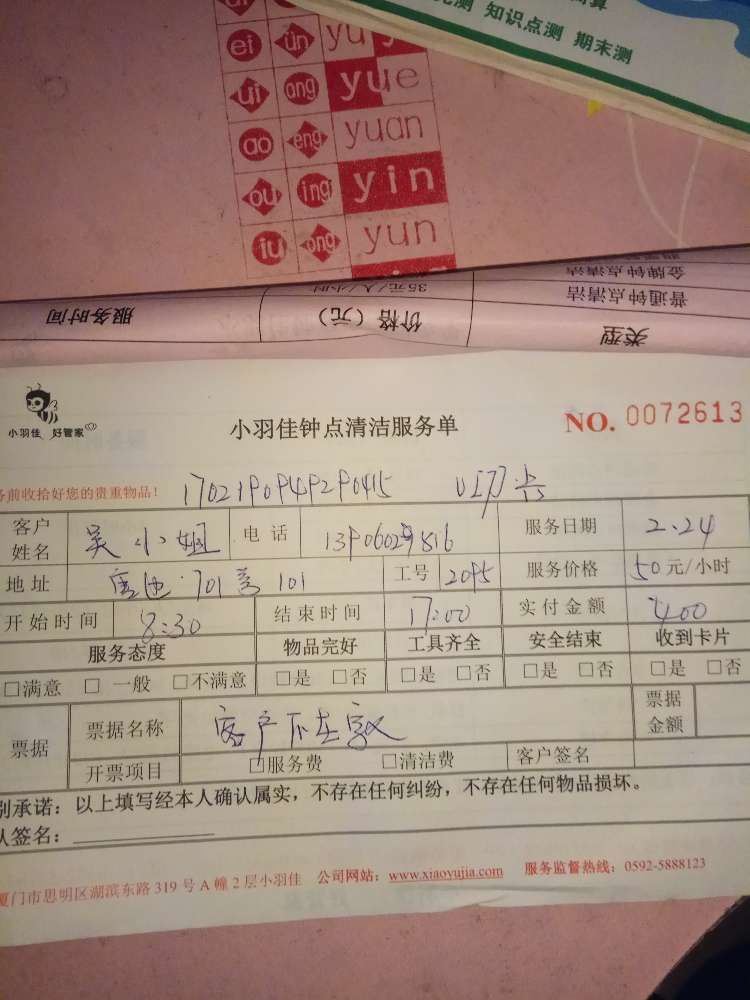 知识点测 期末测
ei ün yu
ui ang yue
ao eng yuan
ou ing yin
iu ong yun
金牌钟点清洁
普通钟点清洁 35元/人/小时
类型 价格（元） 服务时间
小羽佳 好管家
小羽佳钟点清洁服务单 NO. 0072613
务前收拾好您的贵重物品！
客户姓名 吴小姐 电话 服务日期 2.24
地址 701号101 工号 2095 服务价格 50元/小时
开始时间 8:30 结束时间 17:00 实付金额 400
服务态度 物品完好 工具齐全 安全结束 收到卡片
□满意 □一般 □不满意 □是 □否 □是 □否 □是 □否 □是 □否
票据 票据名称 客户不在家 票据金额
开票项目 □服务费 □清洁费 客户签名
别承诺：以上填写经本人确认属实，不存在任何纠纷，不存在任何物品损坏。
人签名：
厦门市思明区湖滨东路319号A幢2层小羽佳 公司网站：www.xiaoyujia.com 服务监督热线：0592-5888123